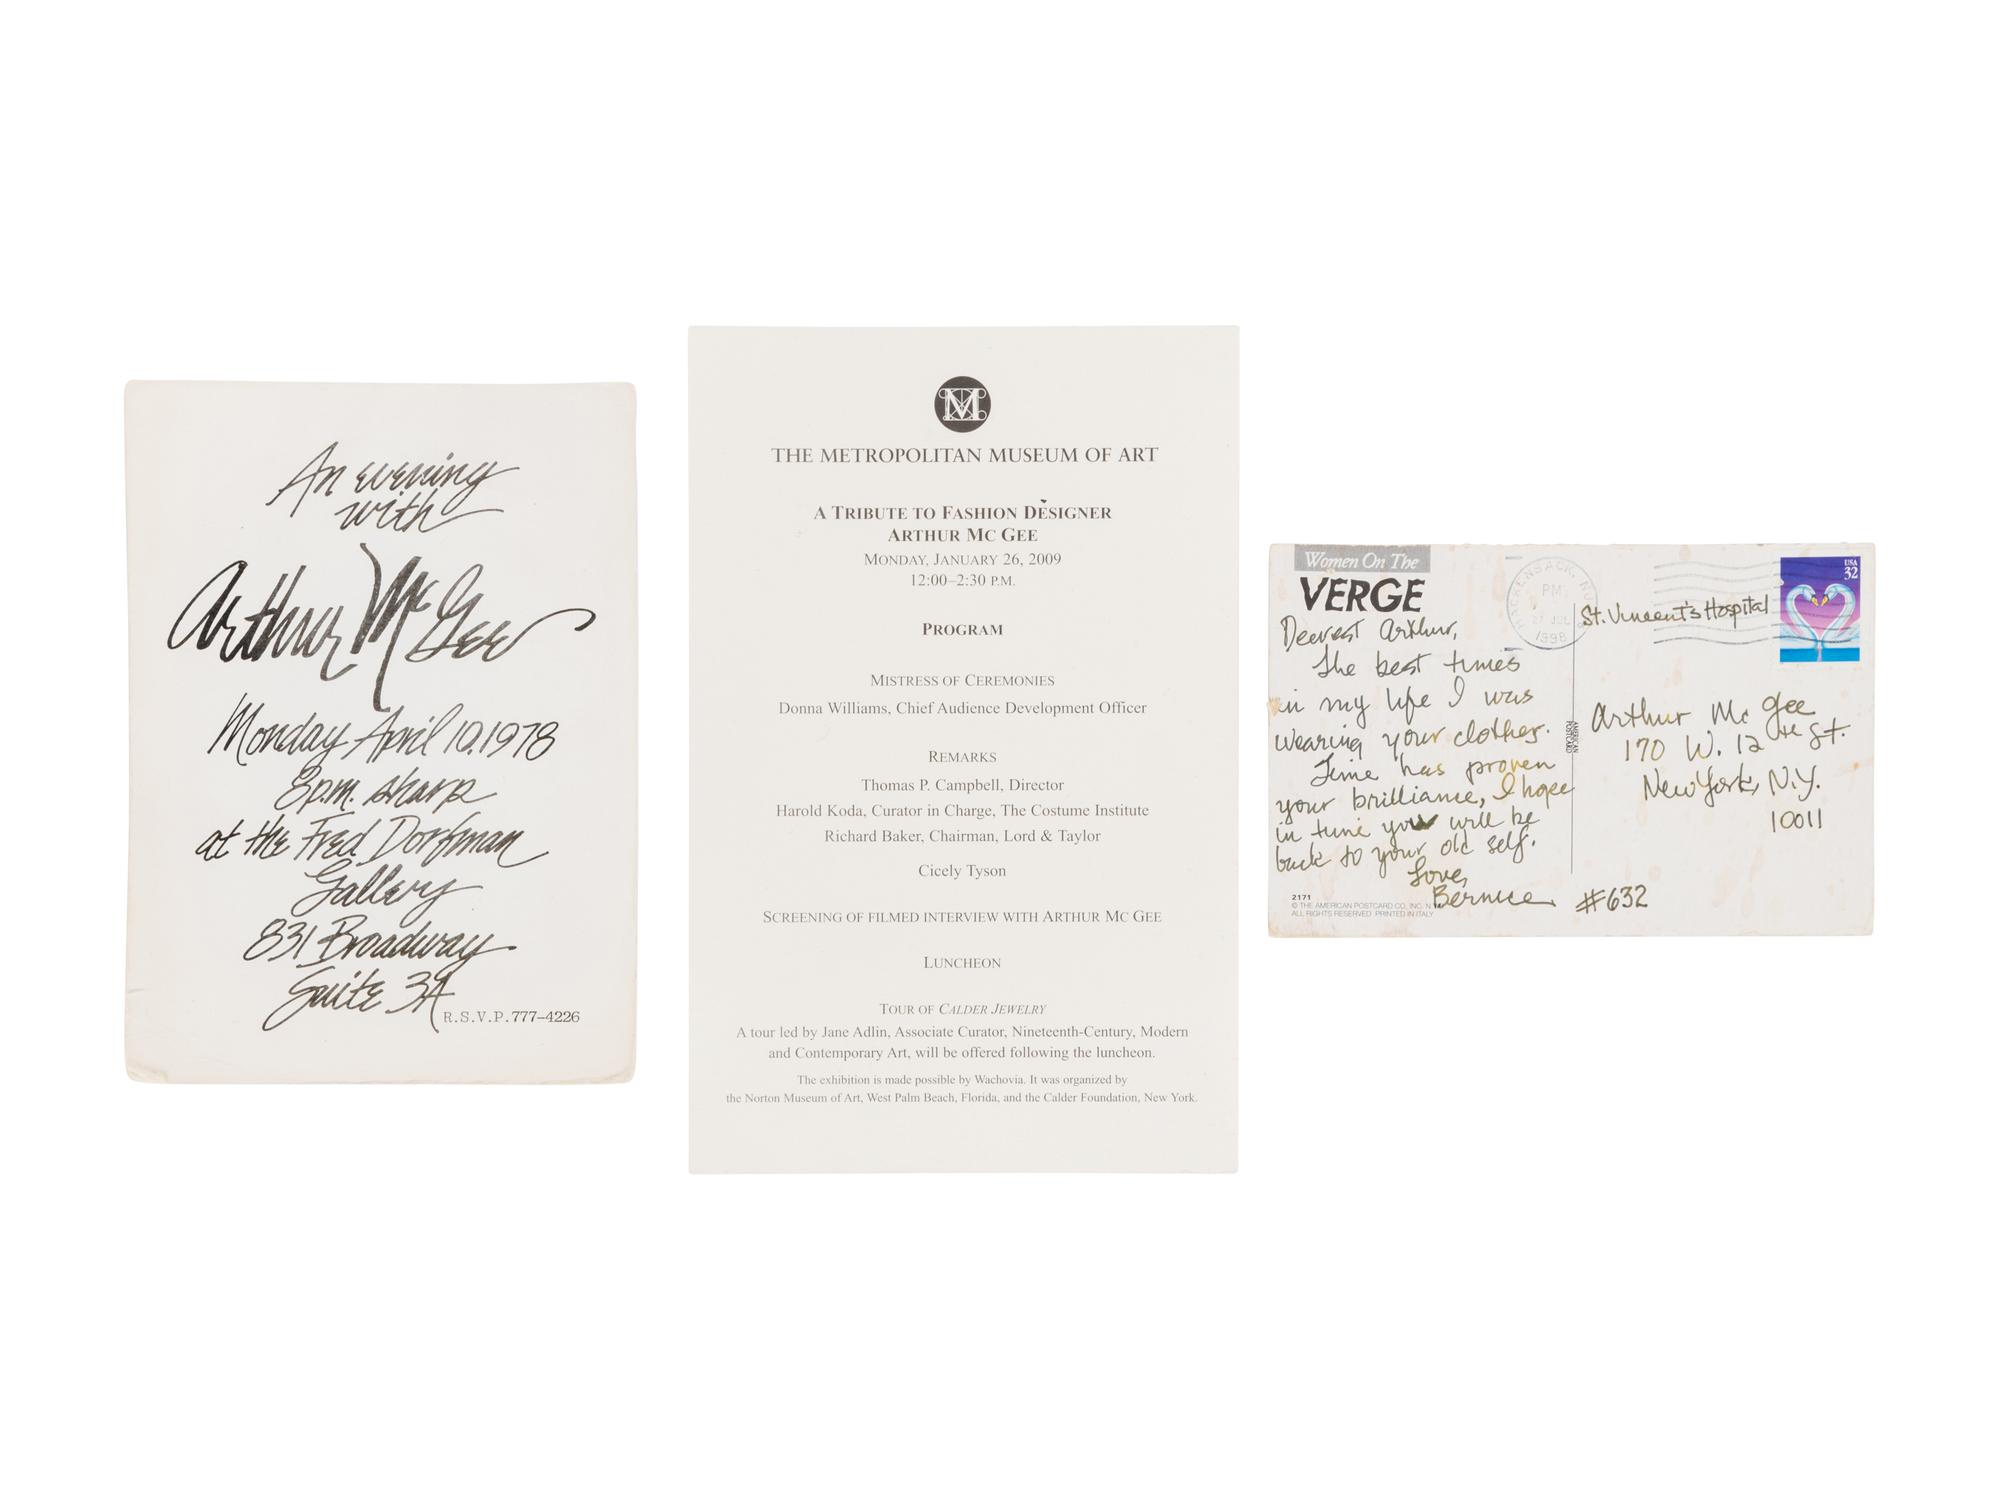 An evening
with
Arthur McGee
Monday April 10.1978
8p.m. sharp
at the Fred Dorfman
Gallery
831 Broadway
Suite 3A
R.S.V.P. 777-4226
M
THE METROPOLITAN MUSEUM OF ART
A TRIBUTE TO FASHION DESIGNER
ARTHUR MC GEE
MONDAY, JANUARY 26, 2009
12:00–2:30 P.M.
PROGRAM
MISTRESS OF CEREMONIES
Donna Williams, Chief Audience Development Officer
REMARKS
Thomas P. Campbell, Director
Harold Koda, Curator in Charge, The Costume Institute
Richard Baker, Chairman, Lord & Taylor
Cicely Tyson
SCREENING OF FILMED INTERVIEW WITH ARTHUR MC GEE
LUNCHEON
TOUR OF CALDER JEWELRY
A tour led by Jane Adlin, Associate Curator, Nineteenth-Century, Modern
and Contemporary Art, will be offered following the luncheon.
The exhibition is made possible by Wachovia. It was organized by
the Norton Museum of Art, West Palm Beach, Florida, and the Calder Foundation, New York.
Women On The
VERGE
Dearest Arthur,
The best times
in my life I was
wearing your clothes.
Time has proven
your brilliance, I hope
in time you will be
back to your old self.
Love,
Bernice
2171
© THE AMERICAN POSTCARD CO., INC. N.Y.
ALL RIGHTS RESERVED PRINTED IN ITALY
AMERICAN
POSTCARD
HACKENSACK, NJ
PM
27 JUL
1998
USA
32
St. Vincent's Hospital
Arthur Mc Gee
170 W. 12 th St.
New York, N.Y.
10011
#632